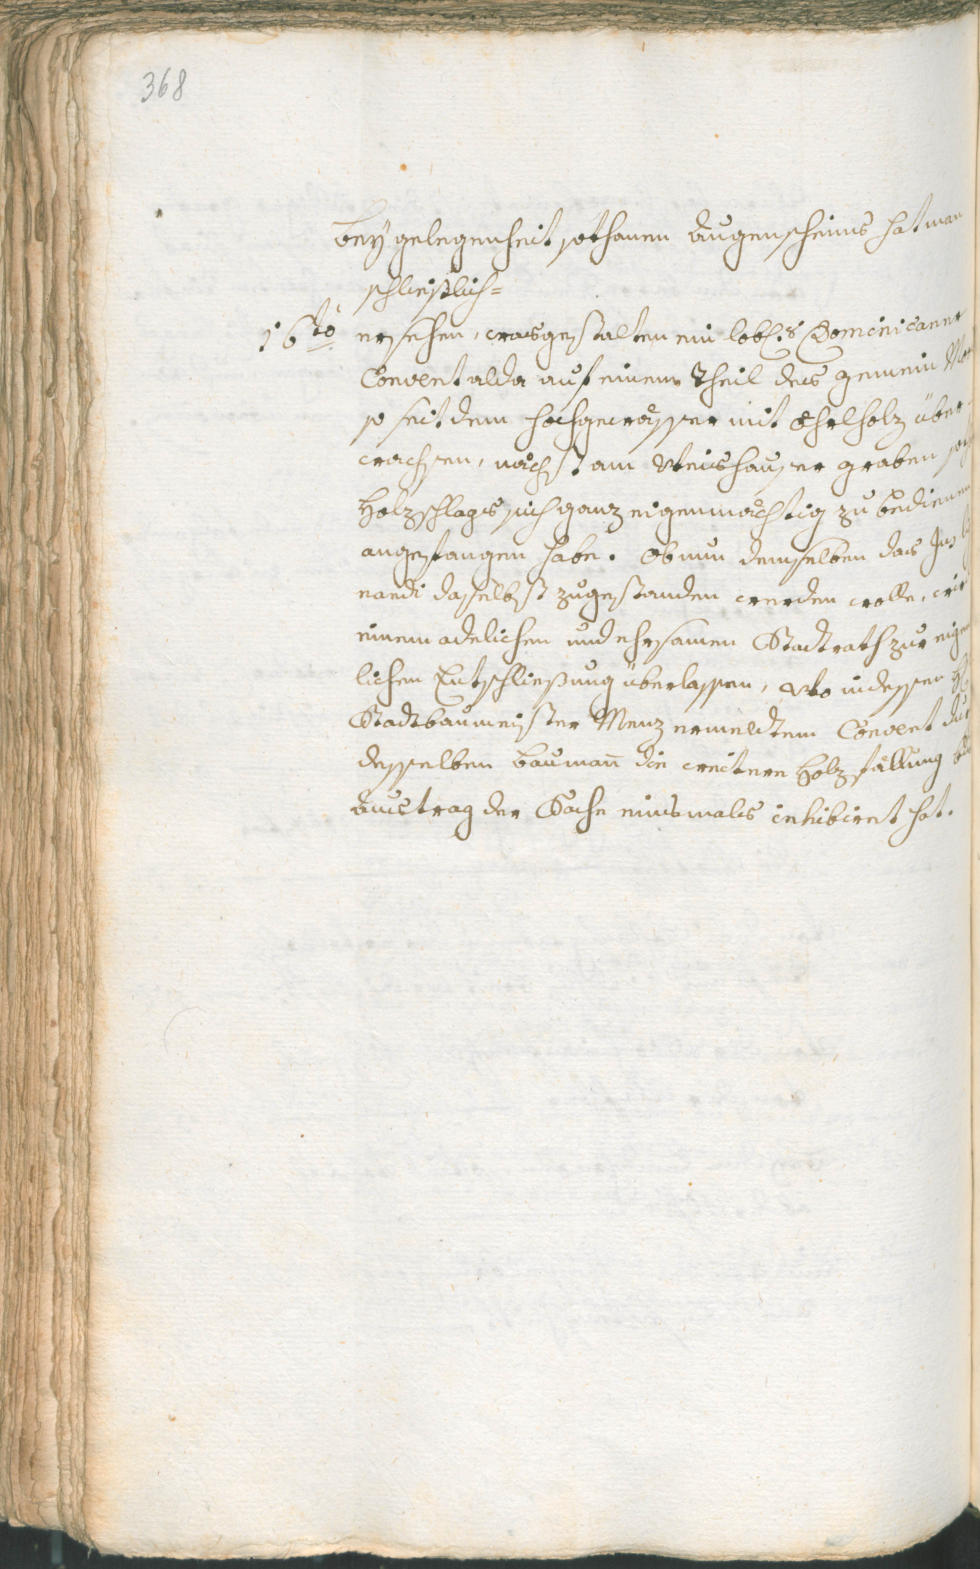 368
Beÿ gelegenheit sothanen Augenscheins hat man
schließlich=
16to ersehen, wasgestalten ein lobl: Dominicaner
Convent alda auf einem Theil des gemein
so seit dem Hochgewässer mit Ehrlholz über-
wachsen, nächst am Weishauser graben
Holzschlags sich ganz eigenmächtig zu bedienen
angefangen habe. Ob nun demselben das Jus
nandi daselbst zugestanden werden wolle, wird
einem adelichen und ehrsamen Stadtrath zur eigent
lichen Entschließung überlassen, Wo indessen H:
Stadtbaumeister Menz ermeldtem Convent durch
desselben baumann die weitere Holzfällung bis
Austrag der Sache einsmals inhibirt hat.